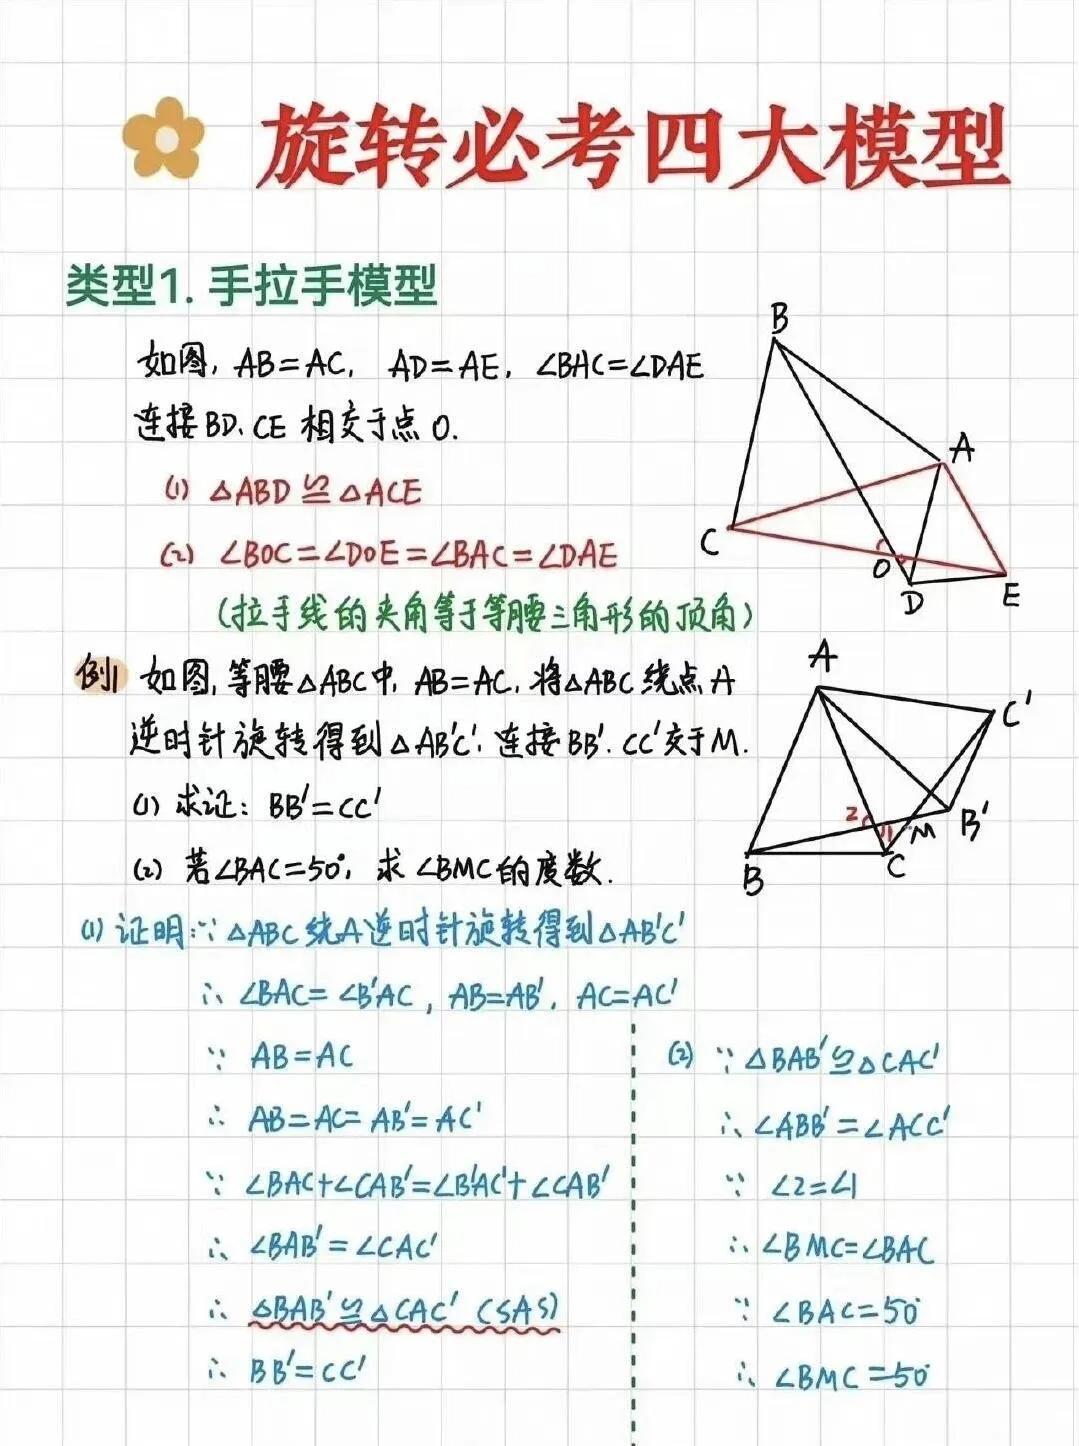 旋转必考四大模型
类型1. 手拉手模型
如图, AB=AC, AD=AE, ∠BAC=∠DAE
连接BD、CE 相交于点 O.
(1) △ABD≌△ACE
(2) ∠BOC=∠DOE=∠BAC=∠DAE
(拉手线的夹角等于等腰三角形的顶角)
B
A
C
O
D
E
例1 如图, 等腰△ABC中, AB=AC, 将△ABC绕点A
逆时针旋转得到△AB'C', 连接BB'、CC'交于M.
(1) 求证: BB'=CC'
(2) 若∠BAC=50°, 求∠BMC的度数.
A
C'
2
1
M
B'
B
C
(1) 证明: ∵ △ABC绕A逆时针旋转得到△AB'C'
∴ ∠BAC=∠B'AC, AB=AB', AC=AC'
∵ AB=AC
∴ AB=AC=AB'=AC'
∵ ∠BAC+∠CAB'=∠B'AC'+∠CAB'
∴ ∠BAB'=∠CAC'
∴ △BAB'≌△CAC' (SAS)
∴ BB'=CC'
(2) ∵ △BAB'≌△CAC'
∴ ∠ABB'=∠ACC'
∵ ∠2=∠1
∴ ∠BMC=∠BAC
∵ ∠BAC=50°
∴ ∠BMC=50°